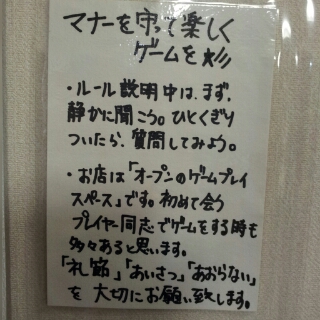 マナーを守って楽しく
ゲームを
・ルール説明中は、まず、
静かに聞こう。ひとくぎり
ついたら、質問してみよう。
・お店は「オープンのゲームプレイ
スペース」です。初めて会う
プレイヤー同志でゲームをする時も
多々あると思います。
「礼節」「あいさつ」「あおらない」
を大切にお願い致します。